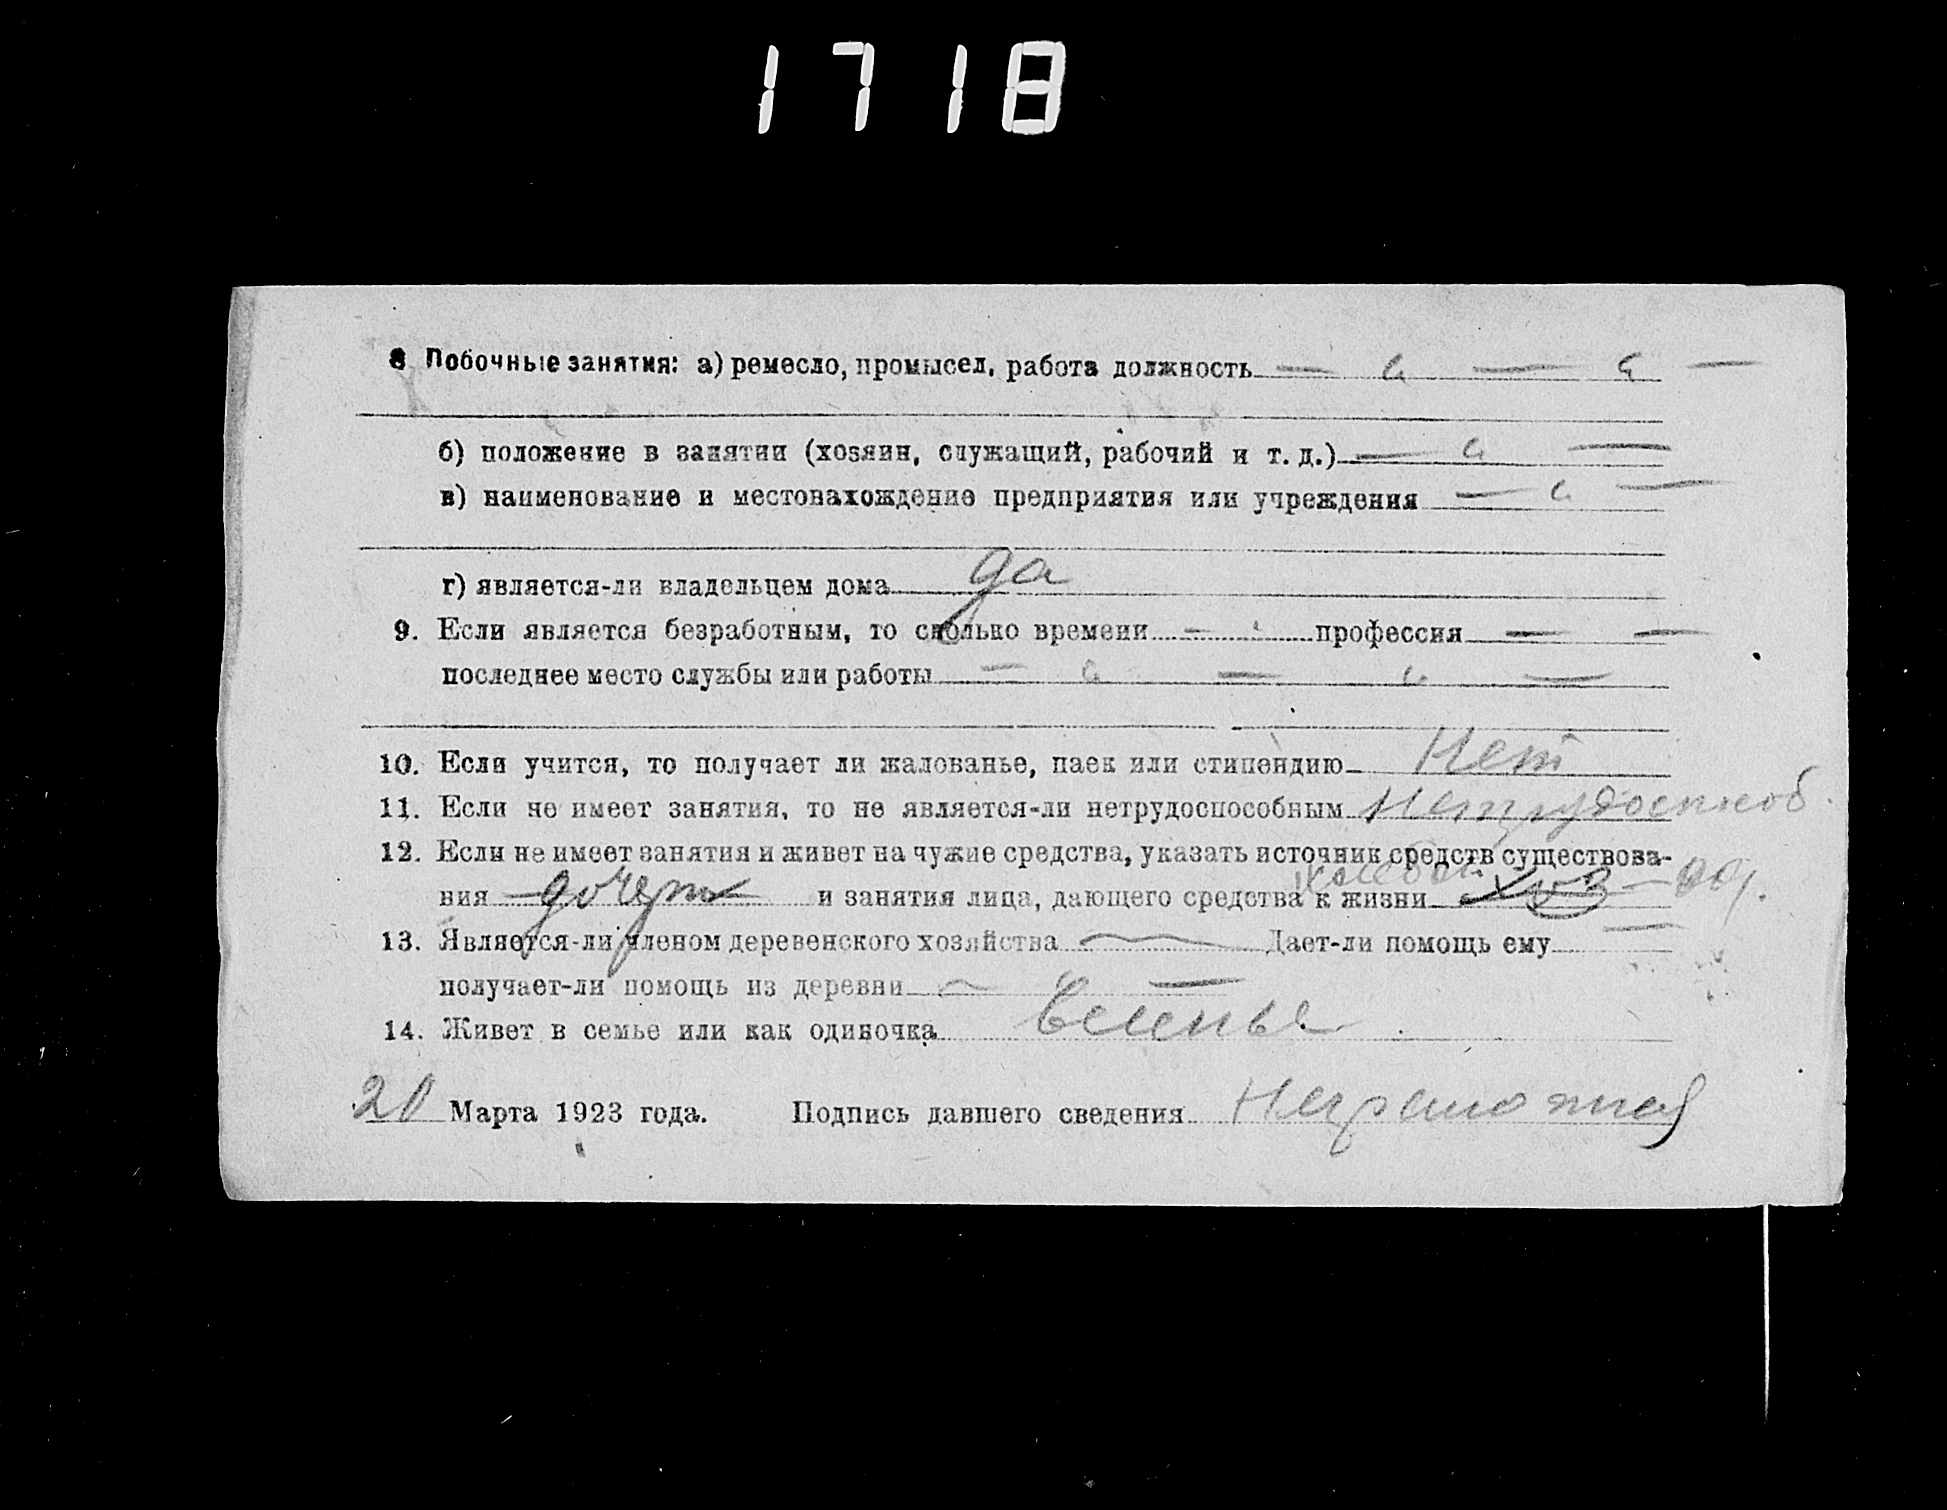 1718
8 Побочные занятия: а) ремесло, промысел, работа должность — " — " —
б) положение в занятии (хозяин, служащий, рабочий и т. д.) — " —
в) наименование и местонахождение предприятия или учреждения — " —
г) является-ли владельцем дома да
9. Если является безработным, то сколько времени — " профессия — —
последнее место службы или работы — " — " —
10. Если учится, то получает ли жалованье, паек или стипендию Нет
11. Если не имеет занятия, то не является-ли нетрудоспособным Нетрудоспособ.
12. Если не имеет занятия и живет на чужие средства, указать источник средств существова-
ния и занятия лица, дающего средства к жизни
13. Является-ли членом деревенского хозяйства — Дает-ли помощь ему —
получает-ли помощь из деревни — —
14. Живет в семье или как одиночка
20 Марта 1923 года. Подпись давшего сведения Неграмотная